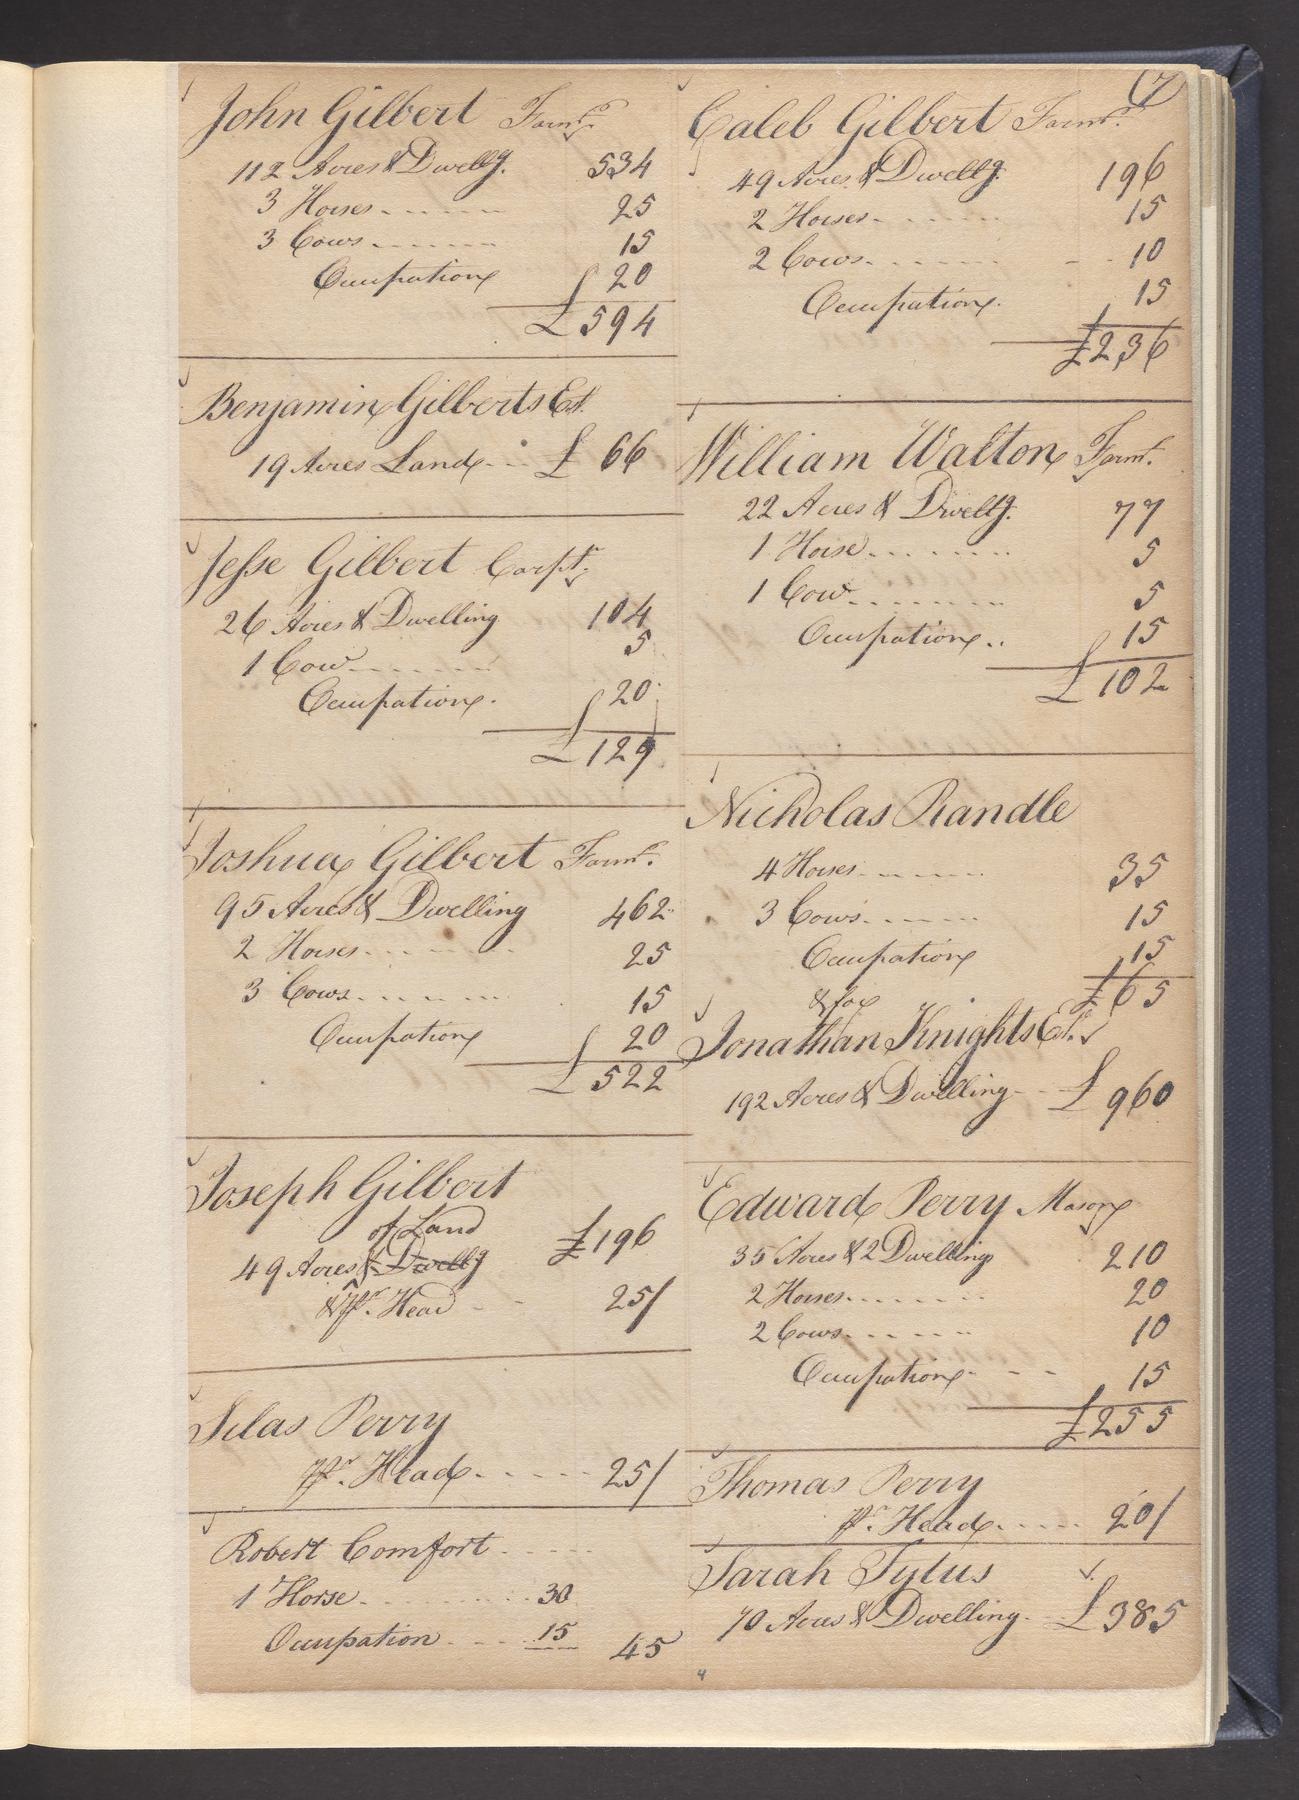 John Gilbert Farmr.
112 Acres & Dwellg. 534
3 Horses 25
3 Cows 15
Occupation 20
£ 594
Benjamin Gilberts Est.
19 Acres Land £ 66
Jesse Gilbert Carpr.
26 Acres & Dwelling 104
1 Cow 5
Occupation 20
£ 129
Joshua Gilbert Farmr.
95 Acres & Dwelling 462
2 Horses 25
3 Cows 15
Occupation 20
£ 522
Joseph Gilbert
of Land
49 Acres & Dwellg £196
& Pr. Head 25/
Silas Perry
Pr. Head 25/
Robert Comfort
1 Horse 30
Occupation 15 45
(7
Caleb Gilbert Farmr.
49 Acres & Dwellg. 196
2 Horses 15
2 Cows 10
Occupation 15
£236
William Walton Farmr.
22 Acres & Dwellg. 77
1 Horse 5
1 Cow 5
Occupation 15
£ 102
Nicholas Randle
4 Horses 35
3 Cows 15
Occupation 15
& for £65
Jonathan Knights Est.
192 Acres & Dwelling £ 960
Edward Perry Mason
35 Acres & 2 Dwellings 210
2 Horses 20
2 Cows 10
Occupation 15
£255
Thomas Perry
Pr. Head 20/
Sarah Tylus
70 Acres & Dwelling £385
4